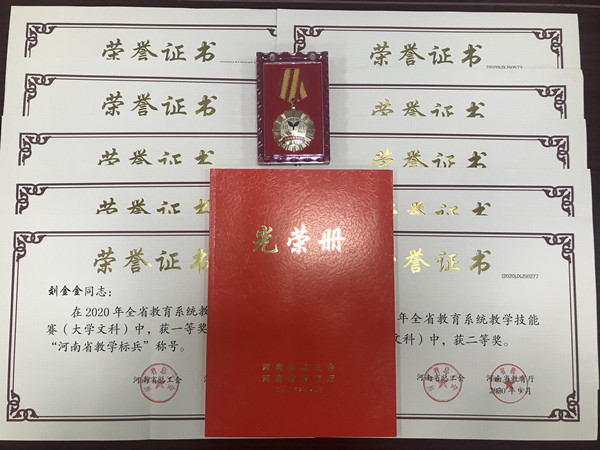 荣誉证书
荣誉证书
荣誉证书
荣誉证书
荣誉证书
荣誉证书
荣誉证书
荣誉证书
荣誉证书
刘金金同志：
在2020年全省教育系统教
赛（大学文科）中，获一等奖
“河南省教学标兵”称号。
河南省总工会
光荣册
河南省总工会
河南省教育厅
荣誉证书
[2020]JXJS0277
年全省教育系统教学技能
文科）中，获二等奖。
河南省总工会
河南省教育厅
2020年9月